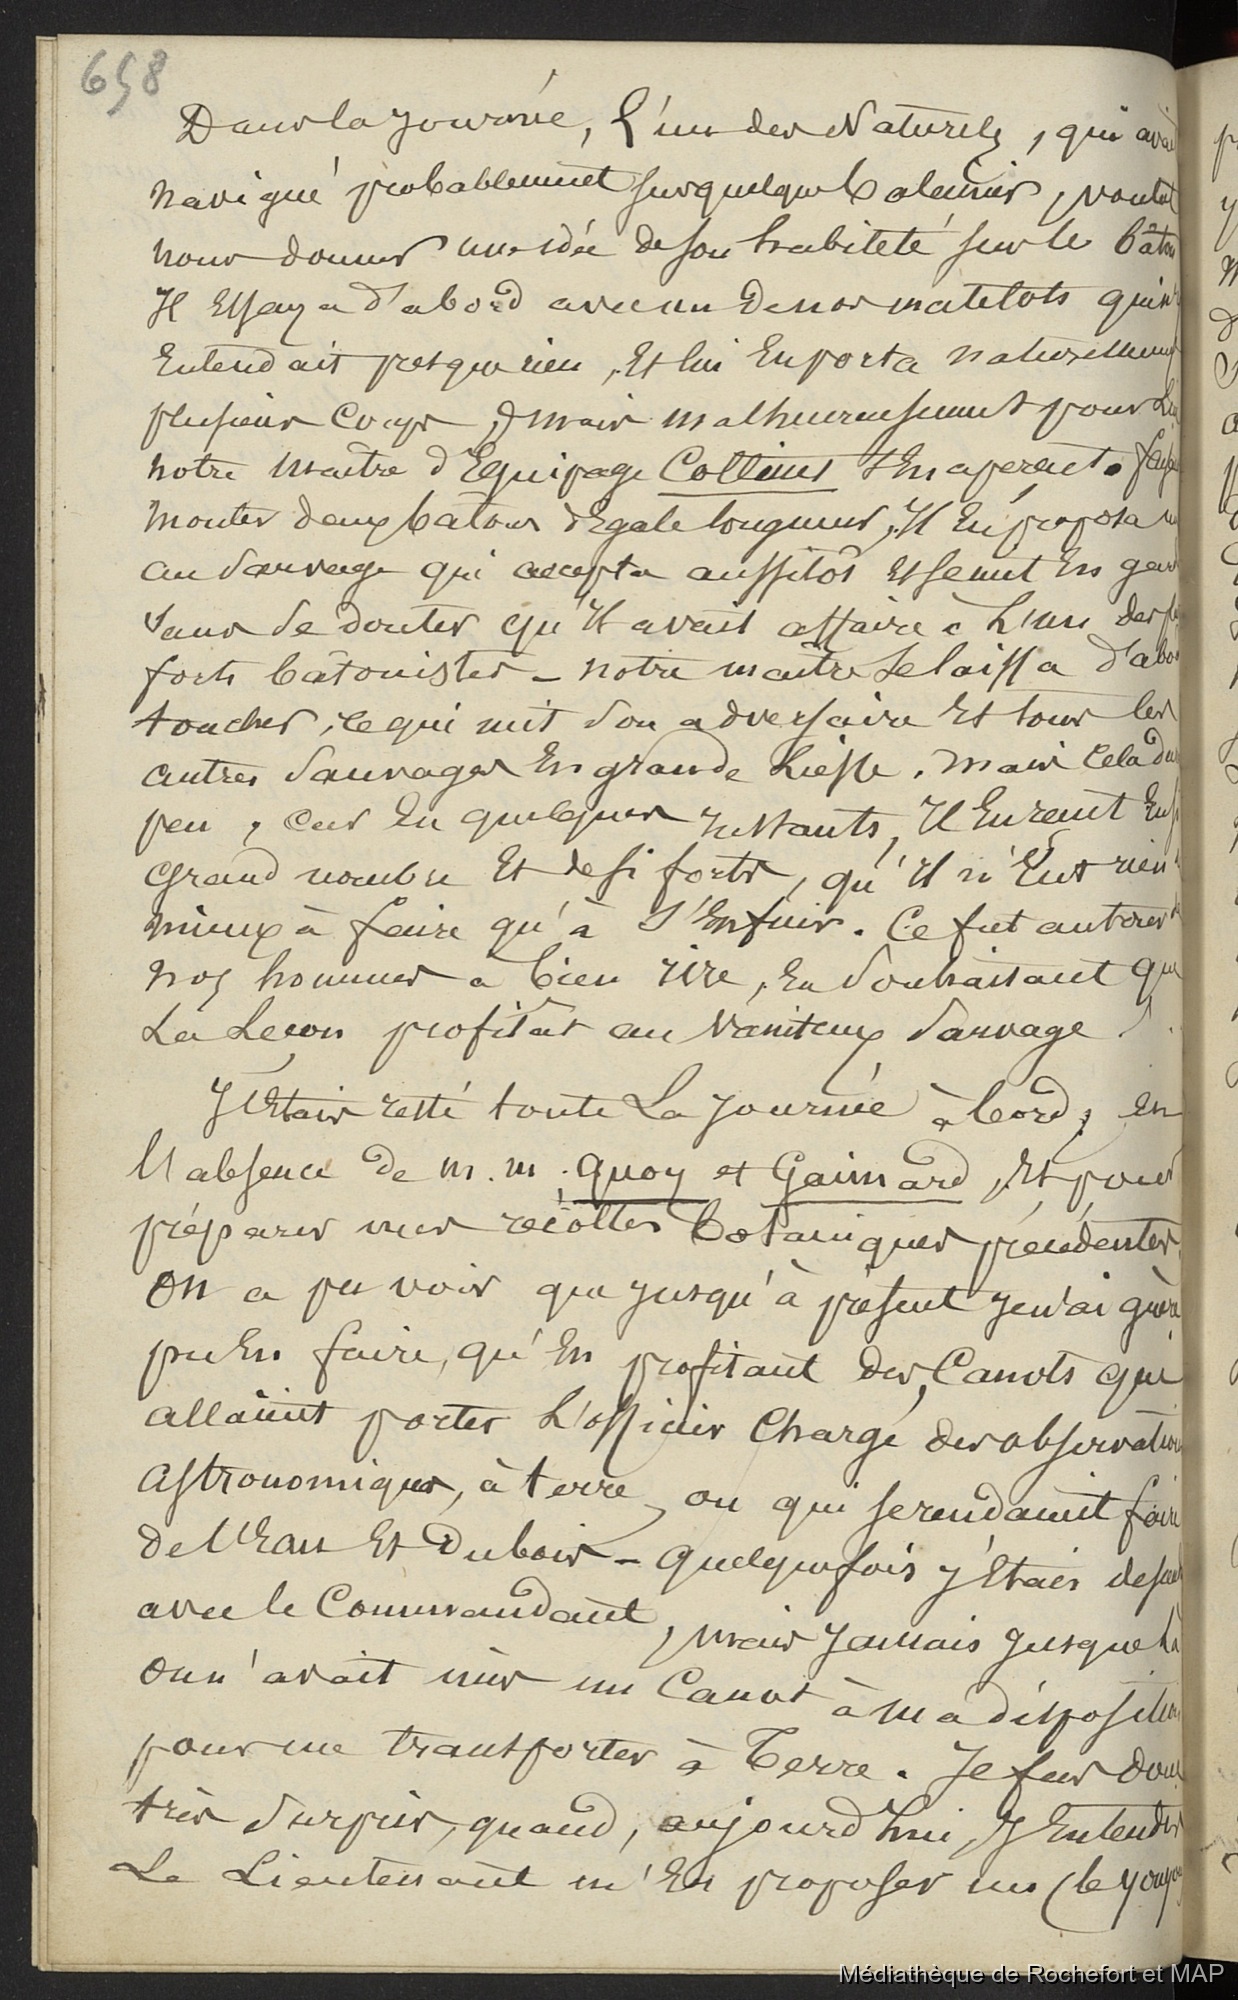 658
Dans la Journée, L'un des Naturels, qui avait
navigué probablement sur quelque baleinier, voulut
nous donner une idée de son habileté sur le bâton
Il Essaya d'abord avec un de nos matelots qui n'y
Entendait presque rien, Et lui En porta naturellement
plusieurs Coups, mais malheureusement pour Lui
notre maître d'Equipage Collinet S'En aperçut. fesant
monter deux bâtons d'Egale longueur, Il En proposa un
au Sauvage qui accepta aussitôt Et se mit En garde
Sans se douter qu'Il avait affaire à L'un des plus
forts bâtonistes - notre maître se laissa d'abord
toucher, ce qui mit Son adversaire Et tous les
autres Sauvages En grande Liesse. mais cela dura
peu, car En quelques Instants, Il En reçut En si
grand nombre Et de si forts, qu'Il n'Eut rien de
mieux à faire qu'à S'Enfuir. Ce fut au tour de
nos hommes à bien rire, En Souhaitant que
La Leçon profitât au Vaniteux Sauvage !
J'Etais resté toute La Journée à bord, en
l'absence de m.m. Quoy et Gaimard, Et pour
préparer mes récoltes botaniques précédentes.
On a pu voir que Jusqu'à présent Je n'ai guère
pu En faire, qu'En profitant des Canots qui
allaient porter L'officier Chargé des observations
Astronomiques, à terre, ou qui se rendaient faire
de l'Eau Et Du bois - quelquefois J'Etais descendu
avec le Commandant, mais Jamais Jusque là
On n'avait mis un Canot à ma disposition
pour me transporter à Terre. Je fus donc
très Surpris, quand, aujourd'hui, J'Entendis
Le Lieutenant m'En proposer un (le youyou
Médiathèque de Rochefort et MAP